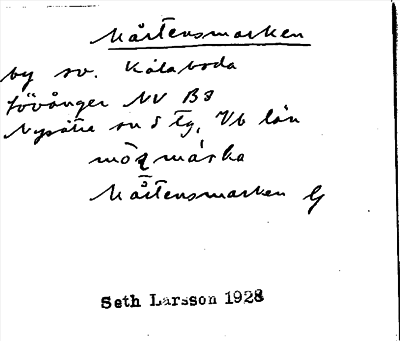 Mårtensmarken
by sv. Kålaboda
Lövånger NV B8
Nysätra sn o tg, Vb län
mòʐmárka
Mårtensmarken G
Seth Larsson 1928